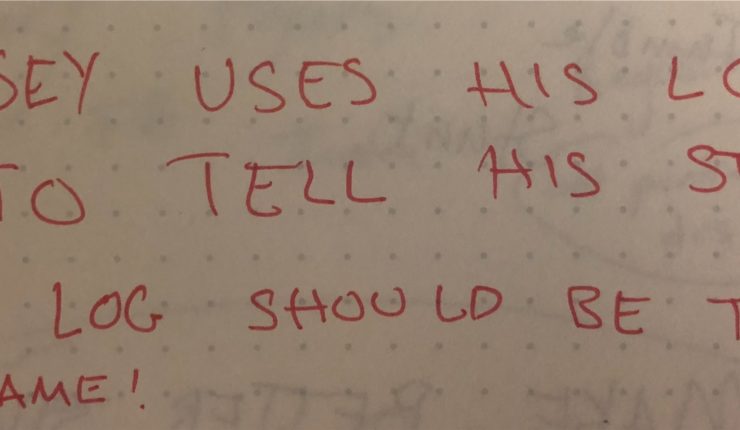 SEY USES HIS LO
TO TELL HIS ST
LOG SHOULD BE T
AME!